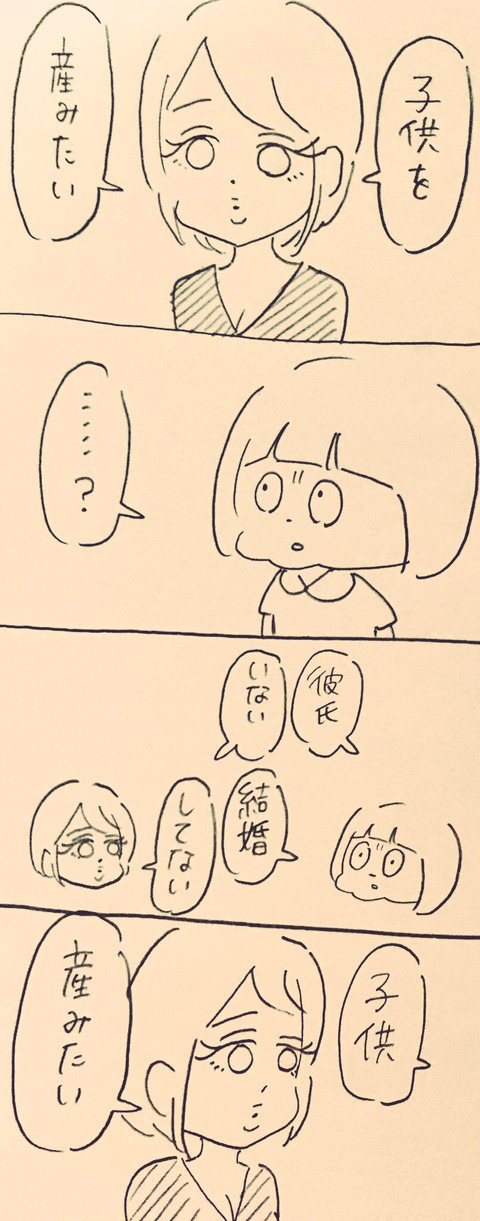 子供を
産みたい
……?
彼氏
いない
結婚
してない
子供
産みたい